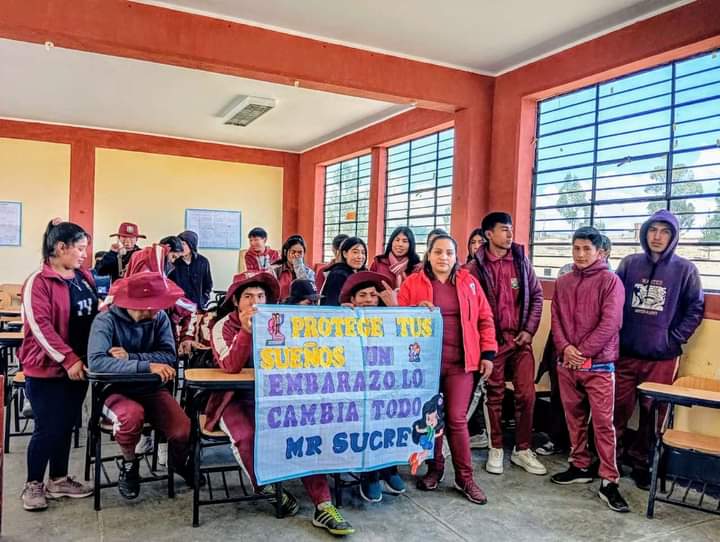 PROTEGE TUS
SUEÑOS UN
EMBARAZO LO
CAMBIA TODO
MR SUCRE